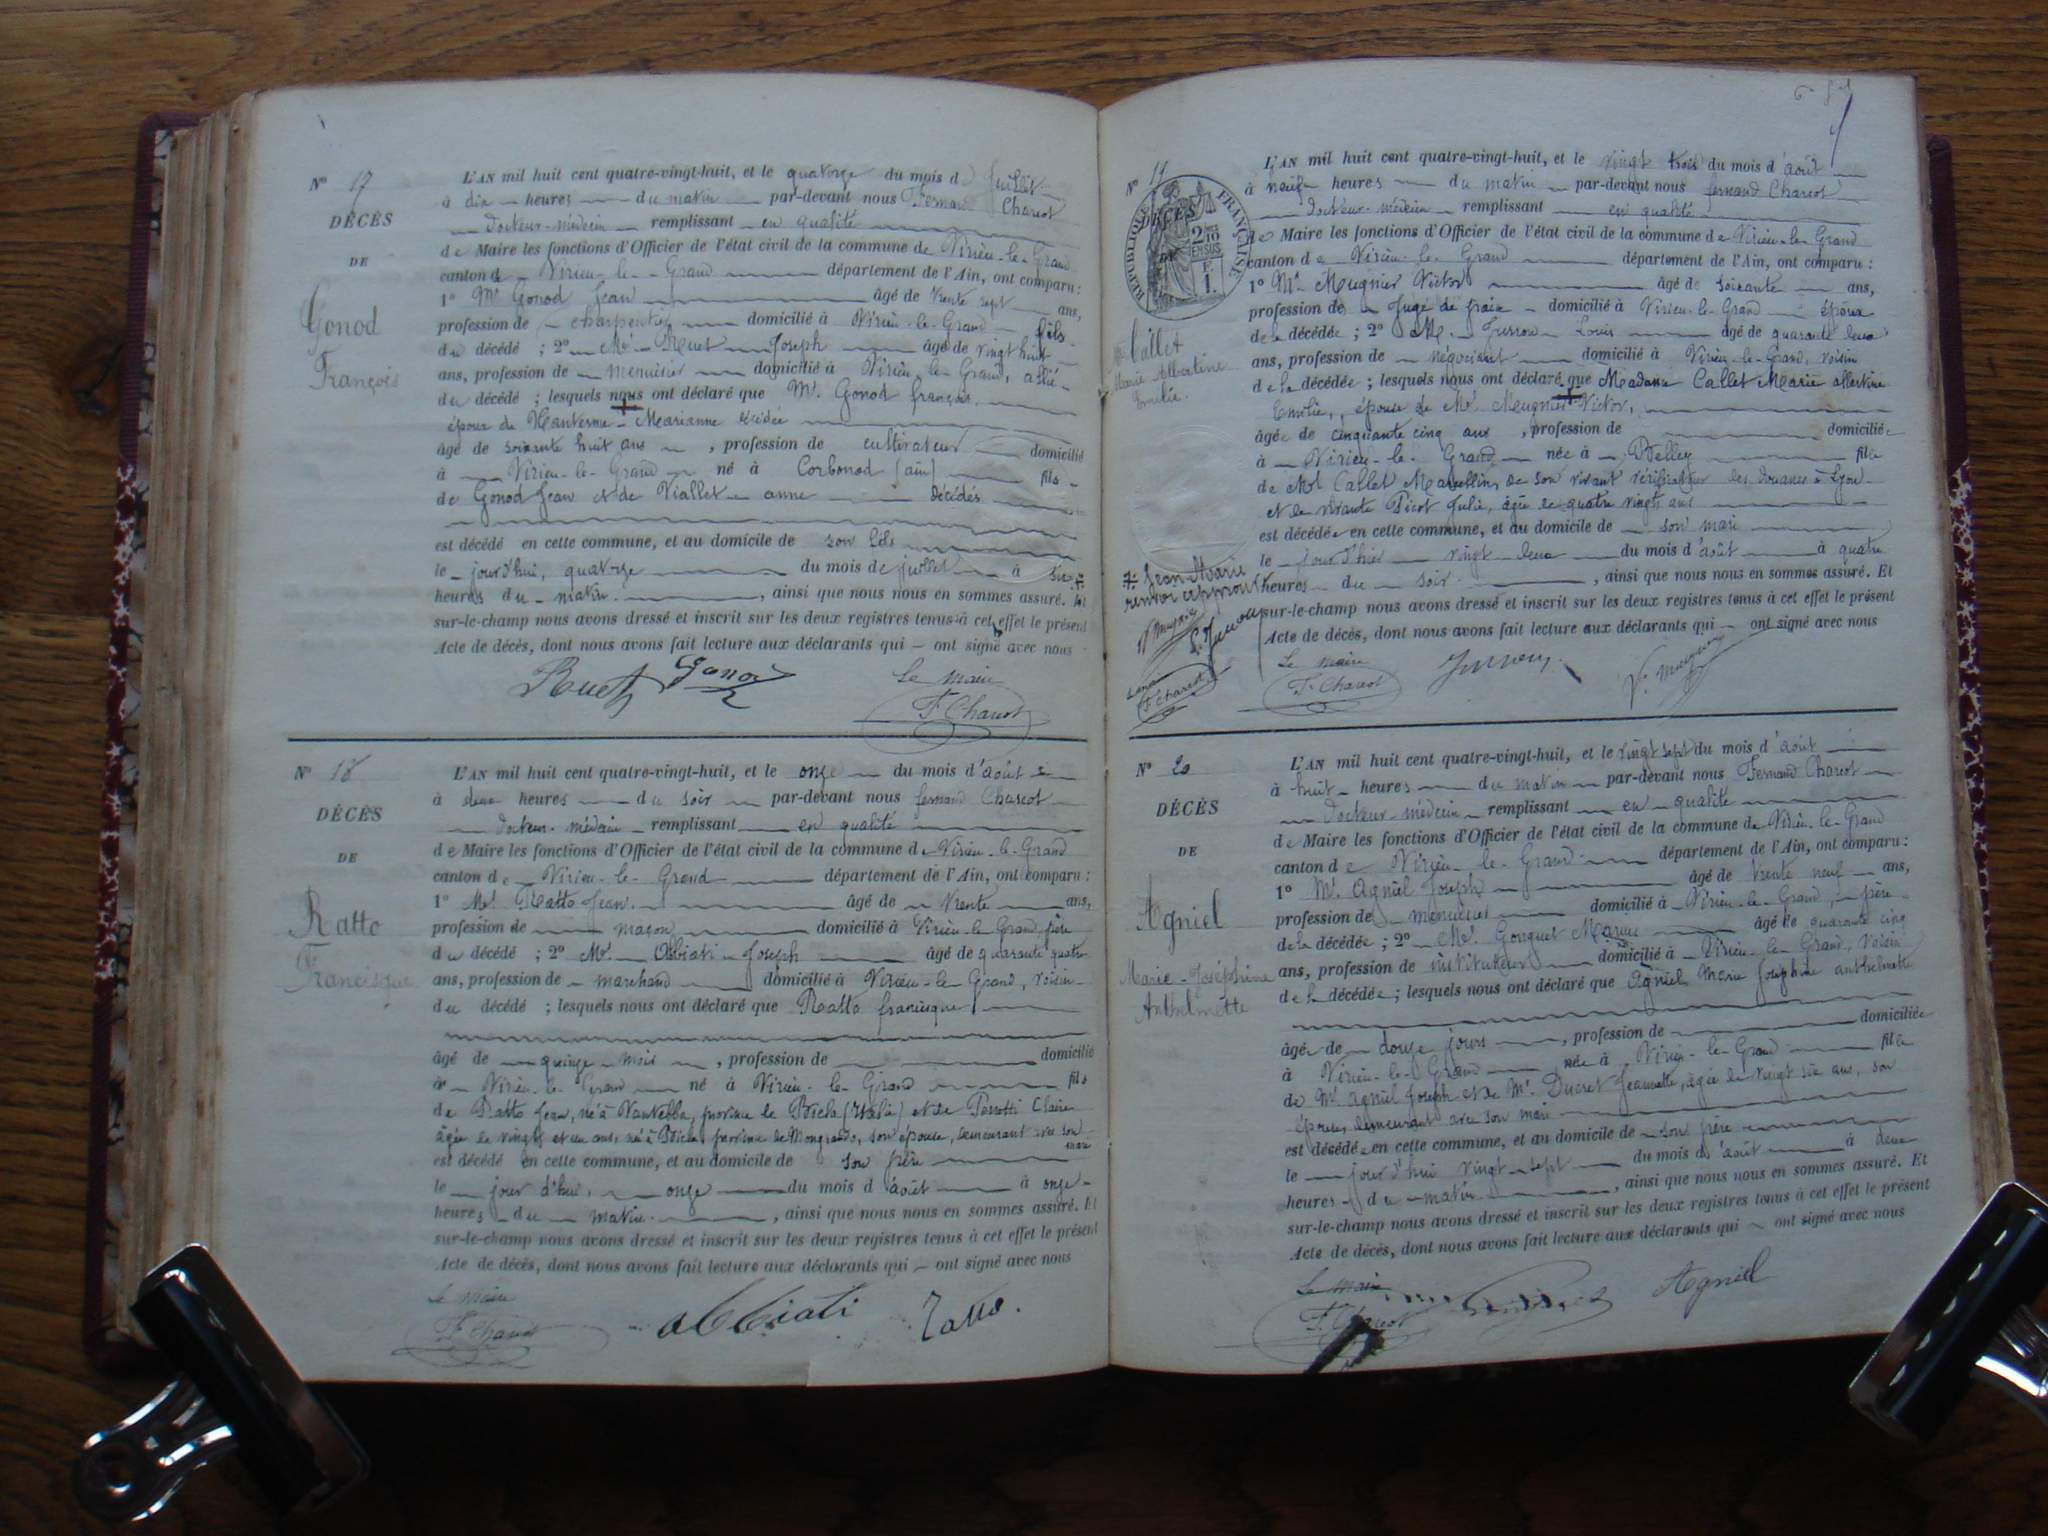 N° 17
DÉCÈS
DE
Gonod
François
L'AN mil huit cent quatre-vingt-huit, et le quatorze du mois de juillet
à dix heures du matin par-devant nous Fernand Charcot
docteur-médecin remplissant en qualité
de Maire les fonctions d'Officier de l'état civil de la commune de Virieu-le-Grand
canton de Virieu-le-Grand département de l'Ain, ont comparu :
1° Mr Gonod Jean âgé de trente sept ans,
profession de charpentier domicilié à Virieu-le-Grand fils
du décédé ; 2° Mr Ruet Joseph âgé de vingt huit
ans, profession de menuisier domicilié à Virieu-le-Grand, allié
du décédé ; lesquels nous ont déclaré que Mr Gonod françois
époux de Marianne décédée
âgé de soixante huit ans, profession de cultivateur domicilié
à Virieu-le-Grand né à Corbonod (ain) fils
de Gonod Jean et de Viallet anne décédés
est décédé en cette commune, et au domicile de son fils
le jourd'hui, quatorze du mois de juillet à six
heures du matin, ainsi que nous nous en sommes assuré. Et
sur-le-champ nous avons dressé et inscrit sur les deux registres tenus à cet effet le présent
Acte de décès, dont nous avons fait lecture aux déclarants qui ont signé avec nous
Ruet Gonod Le maire
F. Charcot
N° 18
DÉCÈS
DE
Ratto
Francisque
L'AN mil huit cent quatre-vingt-huit, et le onze du mois d'août
à deux heures du soir par-devant nous fernand Charcot
docteur-médecin remplissant en qualité
de Maire les fonctions d'Officier de l'état civil de la commune de Virieu-le-Grand
canton de Virieu-le-Grand département de l'Ain, ont comparu :
1° Mr Ratto Jean âgé de trente ans,
profession de maçon domicilié à Virieu-le-Grand, père
du décédé ; 2° Mr Abbiati Joseph âgé de quarante quatre
ans, profession de marchand domicilié à Virieu-le-Grand, voisin
du décédé ; lesquels nous ont déclaré que Ratto francisque
âgé de quinze mois, profession de domicilié
à Virieu-le-Grand né à Virieu-le-Grand fils
de Ratto Jean, né à province de (Italie) et de Claire
âgée de vingt et un ans, né à province de Mongrando, son épouse, demeurant avec son
mari
est décédé en cette commune, et au domicile de son père
le jour d'hui, onze du mois d'août à onze
heures du matin, ainsi que nous nous en sommes assuré. Et
sur-le-champ nous avons dressé et inscrit sur les deux registres tenus à cet effet le présent
Acte de décès, dont nous avons fait lecture aux déclarants qui ont signé avec nous
Le maire
F. Charcot abbiati Ratto.
N° 19
DÉCÈS
DE
RÉPUBLIQUE FRANÇAISE
2/10
EN SUS
F.
1.
Callet
Marie Albertine
Emilie.
L'AN mil huit cent quatre-vingt-huit, et le vingt trois du mois d'août
à neuf heures du matin par-devant nous fernand Charcot
docteur-médecin remplissant en qualité
de Maire les fonctions d'Officier de l'état civil de la commune de Virieu-le-Grand
canton de Virieu-le-Grand département de l'Ain, ont comparu :
1° Mr Meugnier Victor âgé de soixante ans,
profession de Juge de paix domicilié à Virieu-le-Grand époux
de la décédée ; 2° M. Louis âgé de quarante deux
ans, profession de négociant domicilié à Virieu-le-Grand, voisin
de la décédée ; lesquels nous ont déclaré que Madame Callet Marie albertine
Emilie, épouse de Mr Meugnier Victor,
âgée de cinquante cinq ans, profession de domiciliée
à Virieu-le-Grand née à Belley fille
de Mr Callet Marcellin, de son vivant vérificateur des Douanes à Lyon
et de vivante Picot Julie, âgée de quatre vingts ans
est décédée en cette commune, et au domicile de son mari
le jour d'hier vingt deux du mois d'août à quatre
heures du soir, ainsi que nous nous en sommes assuré. Et
sur-le-champ nous avons dressé et inscrit sur les deux registres tenus à cet effet le présent
Acte de décès, dont nous avons fait lecture aux déclarants qui ont signé avec nous
Jean Marie
renvoi approuvé
Le maire
F. Charcot
Le maire
F. Charcot
N° 20
DÉCÈS
DE
Agniel
Marie-Joséphine
Anthelmette
L'AN mil huit cent quatre-vingt-huit, et le vingt sept du mois d'août
à huit heures du matin par-devant nous Fernand Charcot
docteur-médecin remplissant en qualité
de Maire les fonctions d'Officier de l'état civil de la commune de Virieu-le-Grand
canton de Virieu-le-Grand département de l'Ain, ont comparu :
1° Mr Agniel Joseph âgé de trente neuf ans,
profession de menuisier domicilié à Virieu-le-Grand, père
de la décédée ; 2° Mr Gonguet Marius âgé de quarante cinq
ans, profession de instituteur domicilié à Virieu-le-Grand, voisin
de la décédée ; lesquels nous ont déclaré que Agniel Marie Joséphine anthelmette
âgée de douze jours, profession de domiciliée
à Virieu-le-Grand née à Virieu-le-Grand fille
de Mr Agniel Joseph et de Ducret Jeannette, âgée de vingt six ans, son
épouse, demeurant avec son mari
est décédée en cette commune, et au domicile de son père
le jour d'hui vingt sept du mois d'août à deux
heures du matin, ainsi que nous nous en sommes assuré. Et
sur-le-champ nous avons dressé et inscrit sur les deux registres tenus à cet effet le présent
Acte de décès, dont nous avons fait lecture aux déclarants qui ont signé avec nous
Le maire
F. Charcot Agniel